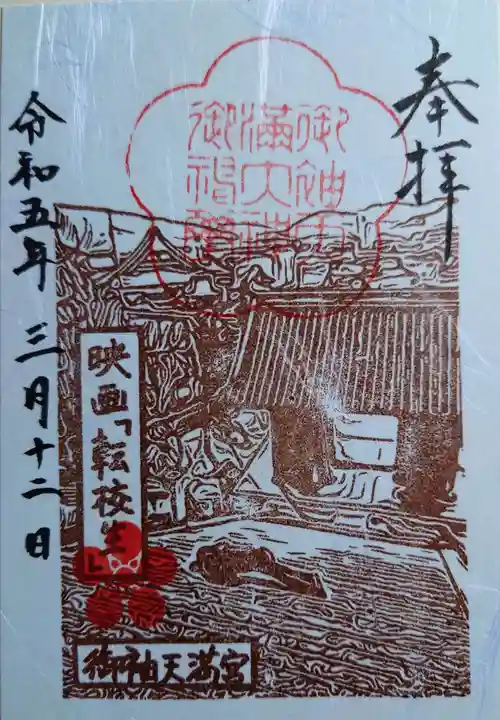 奉拝
令和五年 三月十二日
映画「転校生」
御袖天満宮